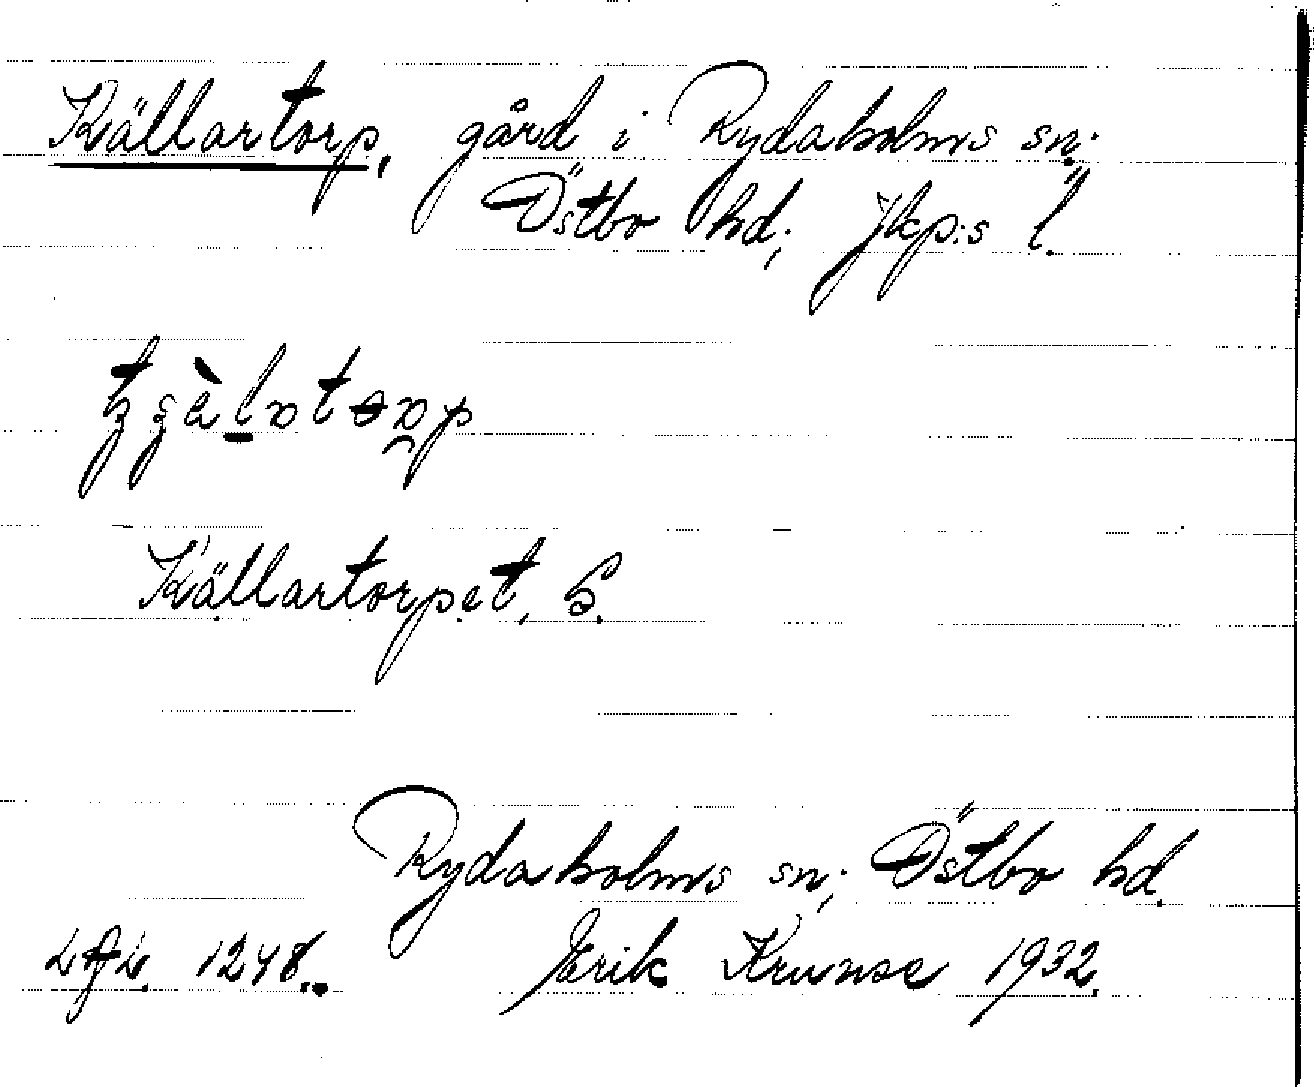 Källartorp, gård i Rydaholms sn;
Östbo hd; Jkp:s l.
Källartorpet, S.
Rydaholms sn; Östbo hd.
1248. Erik Krunse 1932.